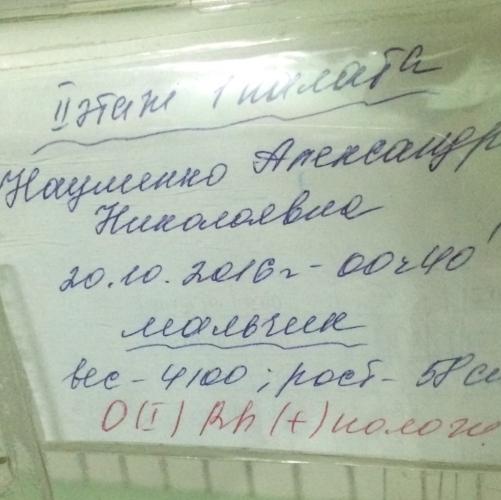 II этаж 1 палата
Науменко Александр
Николаевна
20.10.2016г - 00ч40'
мальчик
вес - 4100; рост - 58 см
O(I) Rh (+) полож.